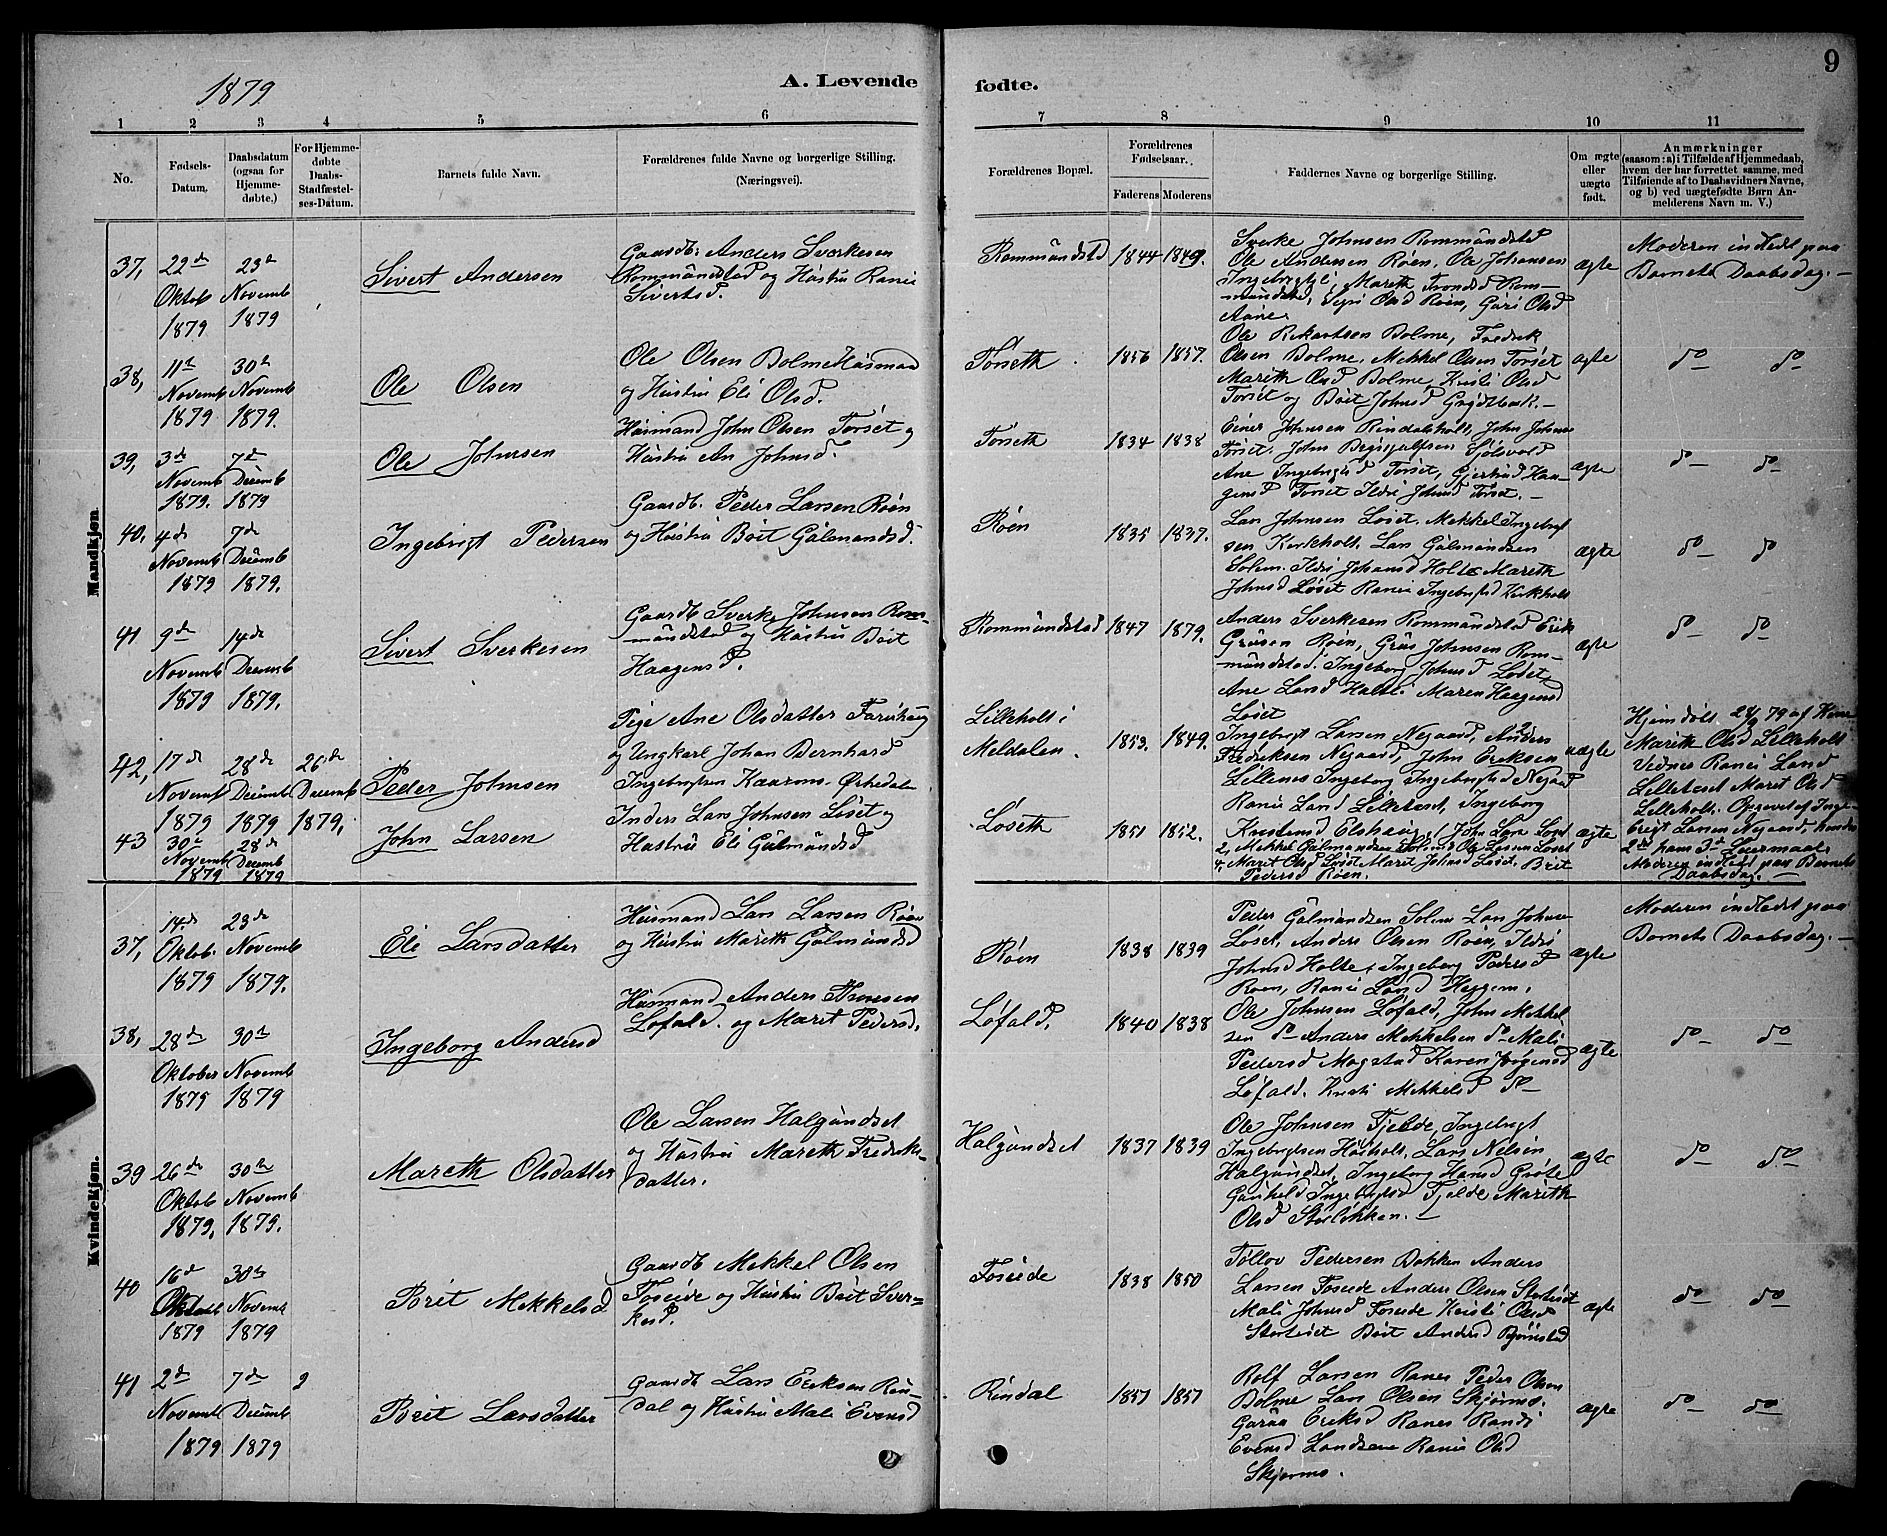 1879
A. Levende fødte.
9
1 2 3 4 5 6 7 8 9 10 11
No.
Fødsels-Datum.
Daabsdatum (ogsaa for Hjemme-døbte.)
For Hjemme-døbte Daabs-Stadfæstel-ses-Datum.
Barnets fulde Navn.
Forældrenes fulde Navne og borgerlige Stilling. (Næringsvei).
Forældrenes Bopæl.
Forældrenes Fødselsaar.
Faderens Moderens
Faddernes Navne og borgerlige Stilling.
Om ægte eller uægte født.
Anmærkninger
(saasom: a) i Tilfælde af Hjemmedaab,
hvem der har forrettet samme, med
Tilføiende af to Daabsvidners Navne,
og b) ved uægtefødte Børn An-
melderens Navn m. V.)
Mandkjøn
37, 22de Oktob 1879
23de Novemb 1879
Sivert Andersen
Gaardb: Anders Sverkesen
Rommundstad og Hustru Rani
Sivertsd.
Rommundstd 1844 1849.
Sverke Johnsen Rommundstad
Ole Andersen Røen, Ole Johansen
Ingebrigtli, Mareth Trondsd Rom-
mundstad, Olsd Røen, Guri Olsd
Aune
ægte
Moderen indledet paa
Barnets Daabsdag. —
38, 11te Novemb 1879
30te Novemb 1879.
Ole Olsen
Ole Olsen Bolme Husmand
og Hustru Eli Olsd.
Torseth 1856 1857.
Ole Rikartsen Bolme, Fredrik
Olsen Bolme, Mekkel Olsen Torset
Marith Olsd Bolme, Kristi Olsd
Torset og Brit Johnsd
ægte
do — do
39, 3de Novemb 1879.
7de Decemb 1879
Ole Johnsen
Husmand John Olsen Torset og
Hustru An Johnsd.
Torseth 1834 1838
Einer Johnsen Rindalsholt, John Johnse
Torset. John Sjølsvold
Ane Torset, Gjertrud Haa-
gensd Torset Ildri Johnsd Torset. —
ægte
do — do
40, 4de Novemb 1879
7de Decemb 1879.
Ingebrigt Pedersen
Gaardb. Peder Larsen Røen
og Hustru Brit Gulmundsd.
Røen 1835 1837.
Lars Johnsen Løset. Mekkel Ingebrigt
sen Kirkholt. Lars Gulmundsen
Solem. Ildri Johansd Holte Mareth
Johnsd Løset Rani Ingebrigtsd Kirkholt
ægte
do — do
41 9de Novemb 1879
14de Decemb 1879.
Sivert Sverkesen
Gaardb Sverke Johnsen Rom-
mundstad og Hustru Brit
Haagensd.
Rommundstad 1847 1879.
Anders Sverkesen Rommundstad Erik
Grusen Røen, Grus Johnsen Rom-
mundstad. Ingeborg Johnsd Løset,
Ane Larsd Haltli Maren Haagensd
Løset
ægte
do — do
42, 17de Novemb 1879
28de Decemb 1879
26de Decemb 1879,
Peder Johnsen
Pige Ane Olsdatter
og Ungkarl Johan Bernhard
Ingebrigtsen Kaarmo. Ørkedalen
Lilleholt i
Meldalen.
1853. 1849.
Ingebrigt Larsen Nygaard, Anders
Fredriksen Nygaard, John Eriksen
Lillenes Ingeborg Ingebrigtsd Nygaard
Rani Larsd Lilleteset, Ingeborg
Knutsd Elshaug
uægte
Hjemdøbt 79 af Kone
Marith Olsd Lilleholt
Vidner Rani Larsd
Lilleteset Maret Olsd
Lilleholt. Opgivet af Inge-
brigt Larsen Nygaard, hendes
2de hans 3de Leiermaal.
43 30te Novemb 1879
28de Decemb 1879
John Larsen
Inders Lars Johnsen Løset og
Hustru Eli Gulmundsd
Løseth 1851 1852.
John Lars Løset
2, Mekkel Gulmundsen Solem 3 Ole Larsen Løset
4, Maret Olsd Løset. Maret Johnsd Løset. Brit
Pedersd Røen.
ægte
Moderen indledet paa Barnets
Daabsdag. —
Kvindekjøn.
37, 14de Oktob. 1879
23de Novemb 1879.
Eli Larsdatter
Husmand Lars Larsen Røen
og Hustru Mareth Gulmundsd
Røen 1838 1839
Peder Gulmundsen Solem Lars Johnse
Løset, Anders Olsen Røen, Ildri
Johnsd Holte, Ingeborg Pedersd
Roen, Rani Larsd Heggem.
ægte
Moderen indledet paa
Barnets Daabsdag. —
38, 28de Oktober 1879
30te Novemb 1879
Ingeborg Andersd
Husmand Anders
Løfald. og Maret Pedersd.
Løfald, 1840 1838
Ole Johnsen Løfald, John Mekkel
sen do — Anders Mekkelsen do — Mali
Pedersd Mogstad Karen Jørgensd
Løfald. Kristi Mekkelsd do —
ægte
do — do
39 26de Oktob 1879.
30te Novemb 1879.
Mareth Olsdatter
Ole Larsen Halgundset
og Hustru Mareth Fredriks-
datter.
Halgundset 1837 1839
Ole Johnsen Fjelde, Ingebrigt
Ingebrigtsen Husholt, Lars Nelsen
Halgundset, Ingeborg Hansd Grøte
Gunhild Ingebrigtsd Fjelde Mareth
Olsd Storløkken. —
ægte
do — do —
40 16de Oktob 1879
30te Novemb 1879
Brit Mekkelsd
Gaardb Mekkel Olsen
Foseide og Hustru Brit Sver-
kesd.
Foseide 1838 1850
Tollov Pedersen Bakken Anders
Larsen Foseide Anders Olsen Storteset
Mali Johnsd Foseide Kristi Olsd
Storteset Brit Andersd Bjørnstad
ægte
do — do —
41 2de Novemb 1879
7de Decemb 1879
2
Brit Larsdatter
Gaardb Lars Eriksen Rin-
dal og Hustru Mali Evensd
Rindal 1857 1857
Rolf Larsen Ranes Peder Olsen
Bolme Lars Olsen Skjermo.
Gurua Eriksd Ranes Randi
Evensd Landsem Rani Olsd
Skjermo.
ægte
do — do —